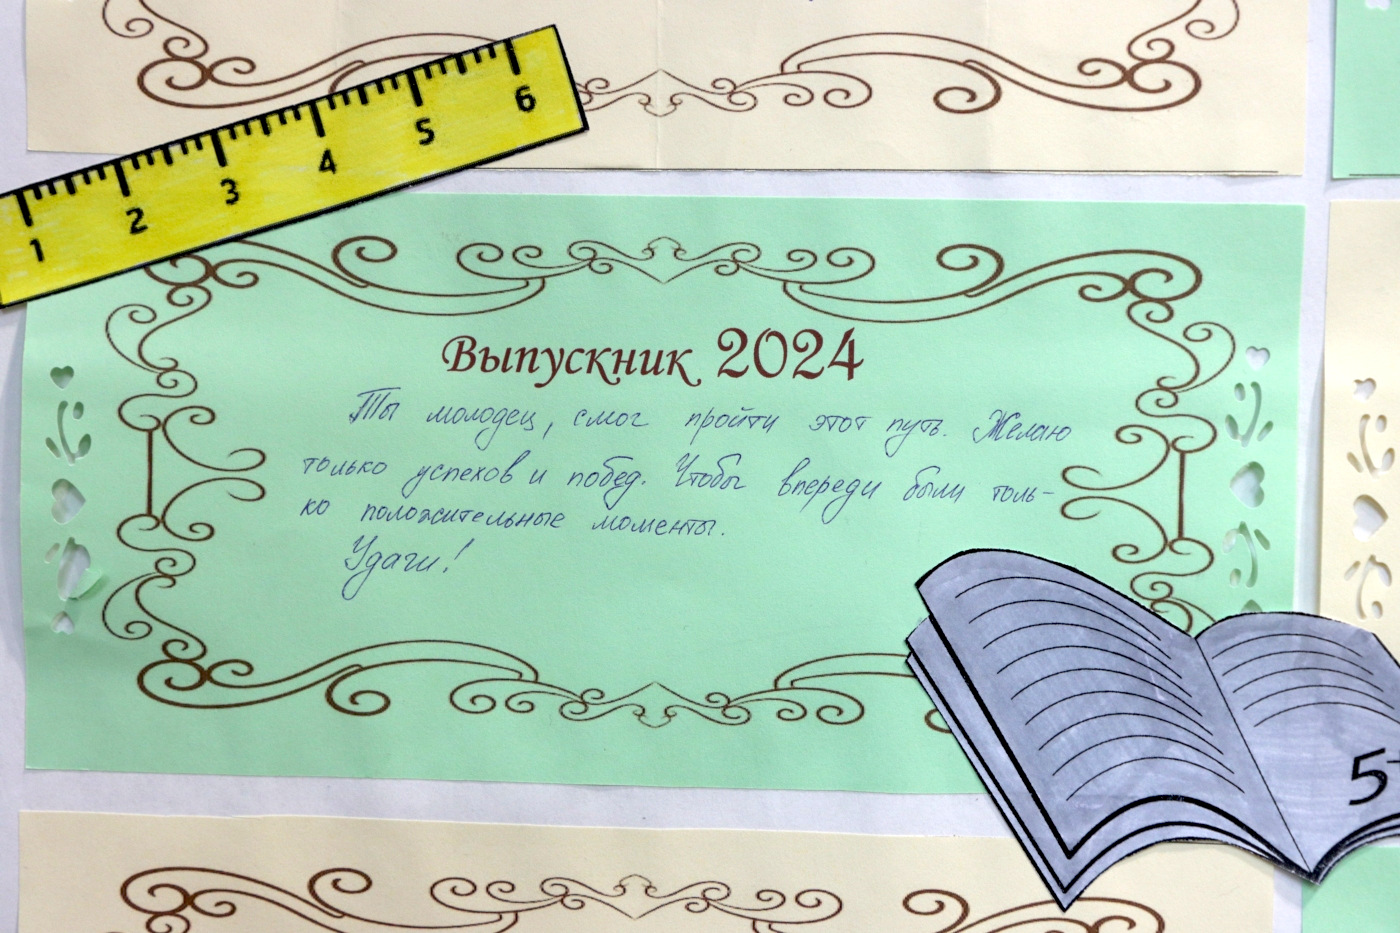 1 2 3 4 5 6
Выпускник 2024
Ты молодец, смог пройти этот путь. Желаю
только успехов и побед. Чтобы впереди были толь-
ко положительные моменты.
Удачи!
5+